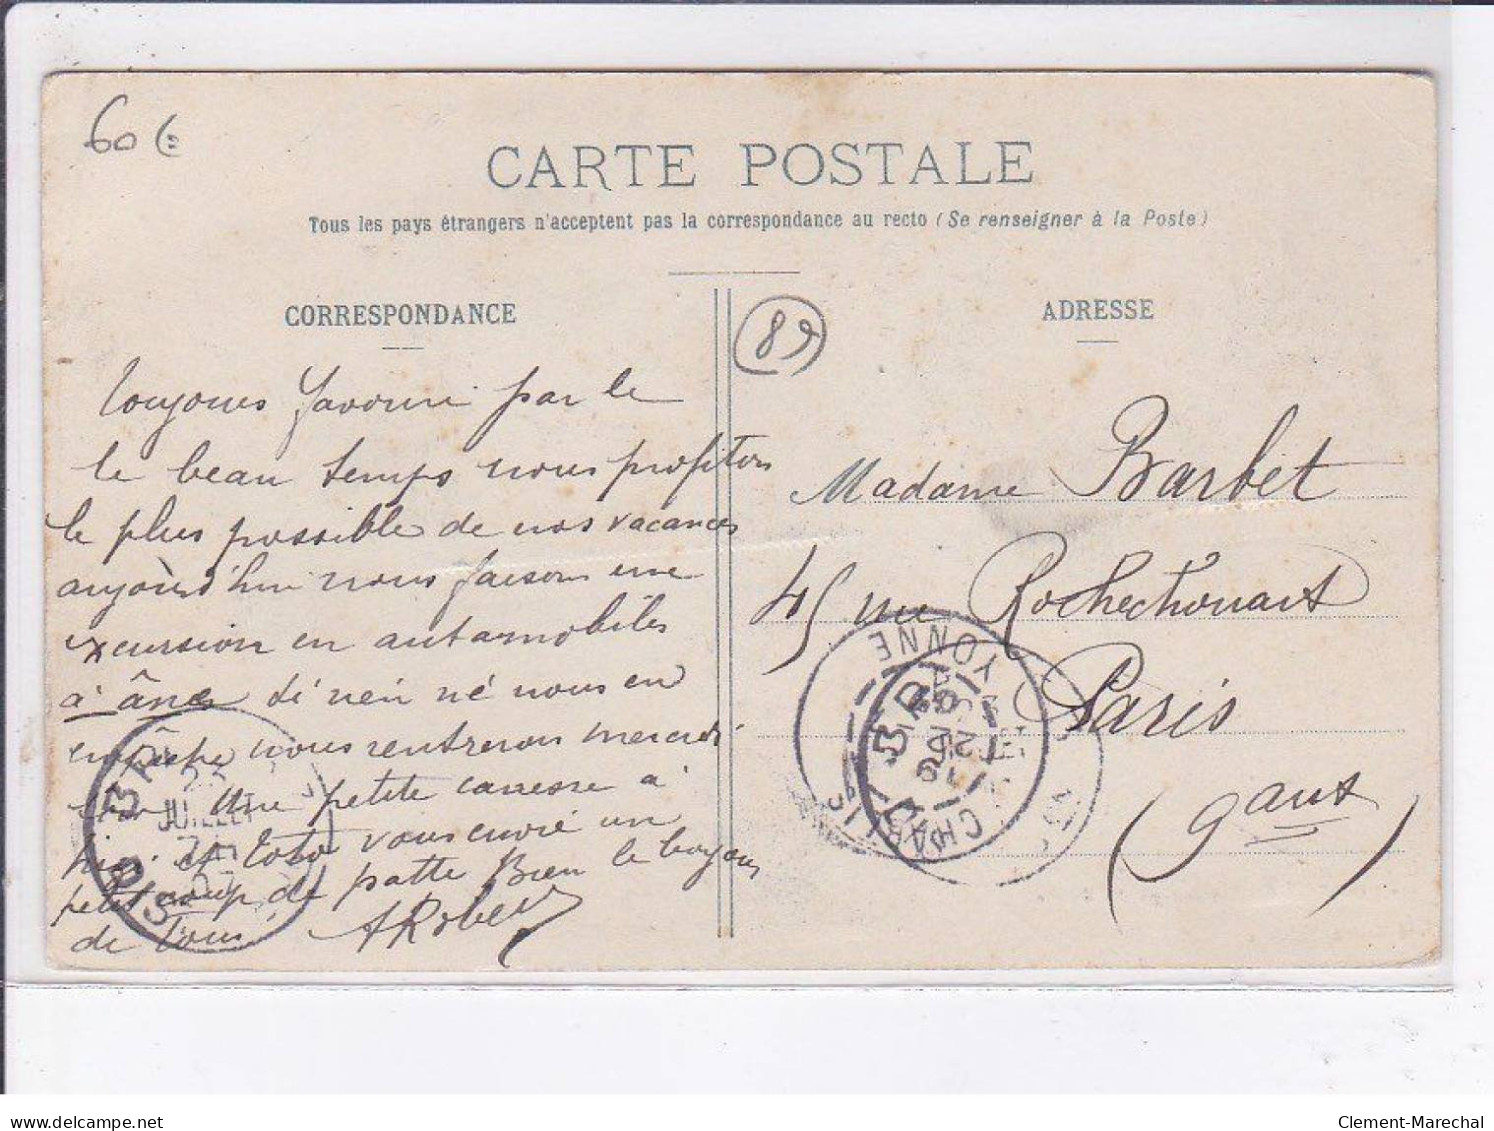 60 €
CARTE POSTALE
Tous les pays étrangers n'acceptent pas la correspondance au recto (Se renseigner à la Poste)
CORRESPONDANCE
toujours favouri par le
le beau temps nous profitons
le plus possible de nos vacances
aujourd'hui nous faisons une
excursion en automobiles
à ânes si rien né nous en
empêche nous rentrerons mercredi
Une petite carresse à
et Toto vous envoi un
petit coup de patte Bien le bonjour
de tous
ARobert
89
ADRESSE
Madame Barbet
45 rue Rochechouart
Paris
(gaus)
YONNE
CHA
JUILLET
07
PARIS
delcampe.net
Clement-Marechal